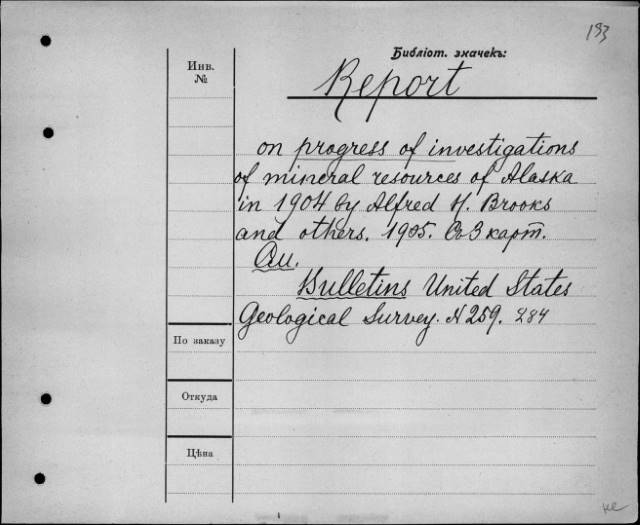 193
Библіот. значекъ:
Инв.
№
Report
on progress of investigations
of mineral resources of Alaska
in 1904 by Alfred H. Brooks
and others. 1905. Со 3 карт.
См.
Bulletins United States
Geological Survey. N 259. 284
По заказу
Откуда
Цѣна
не